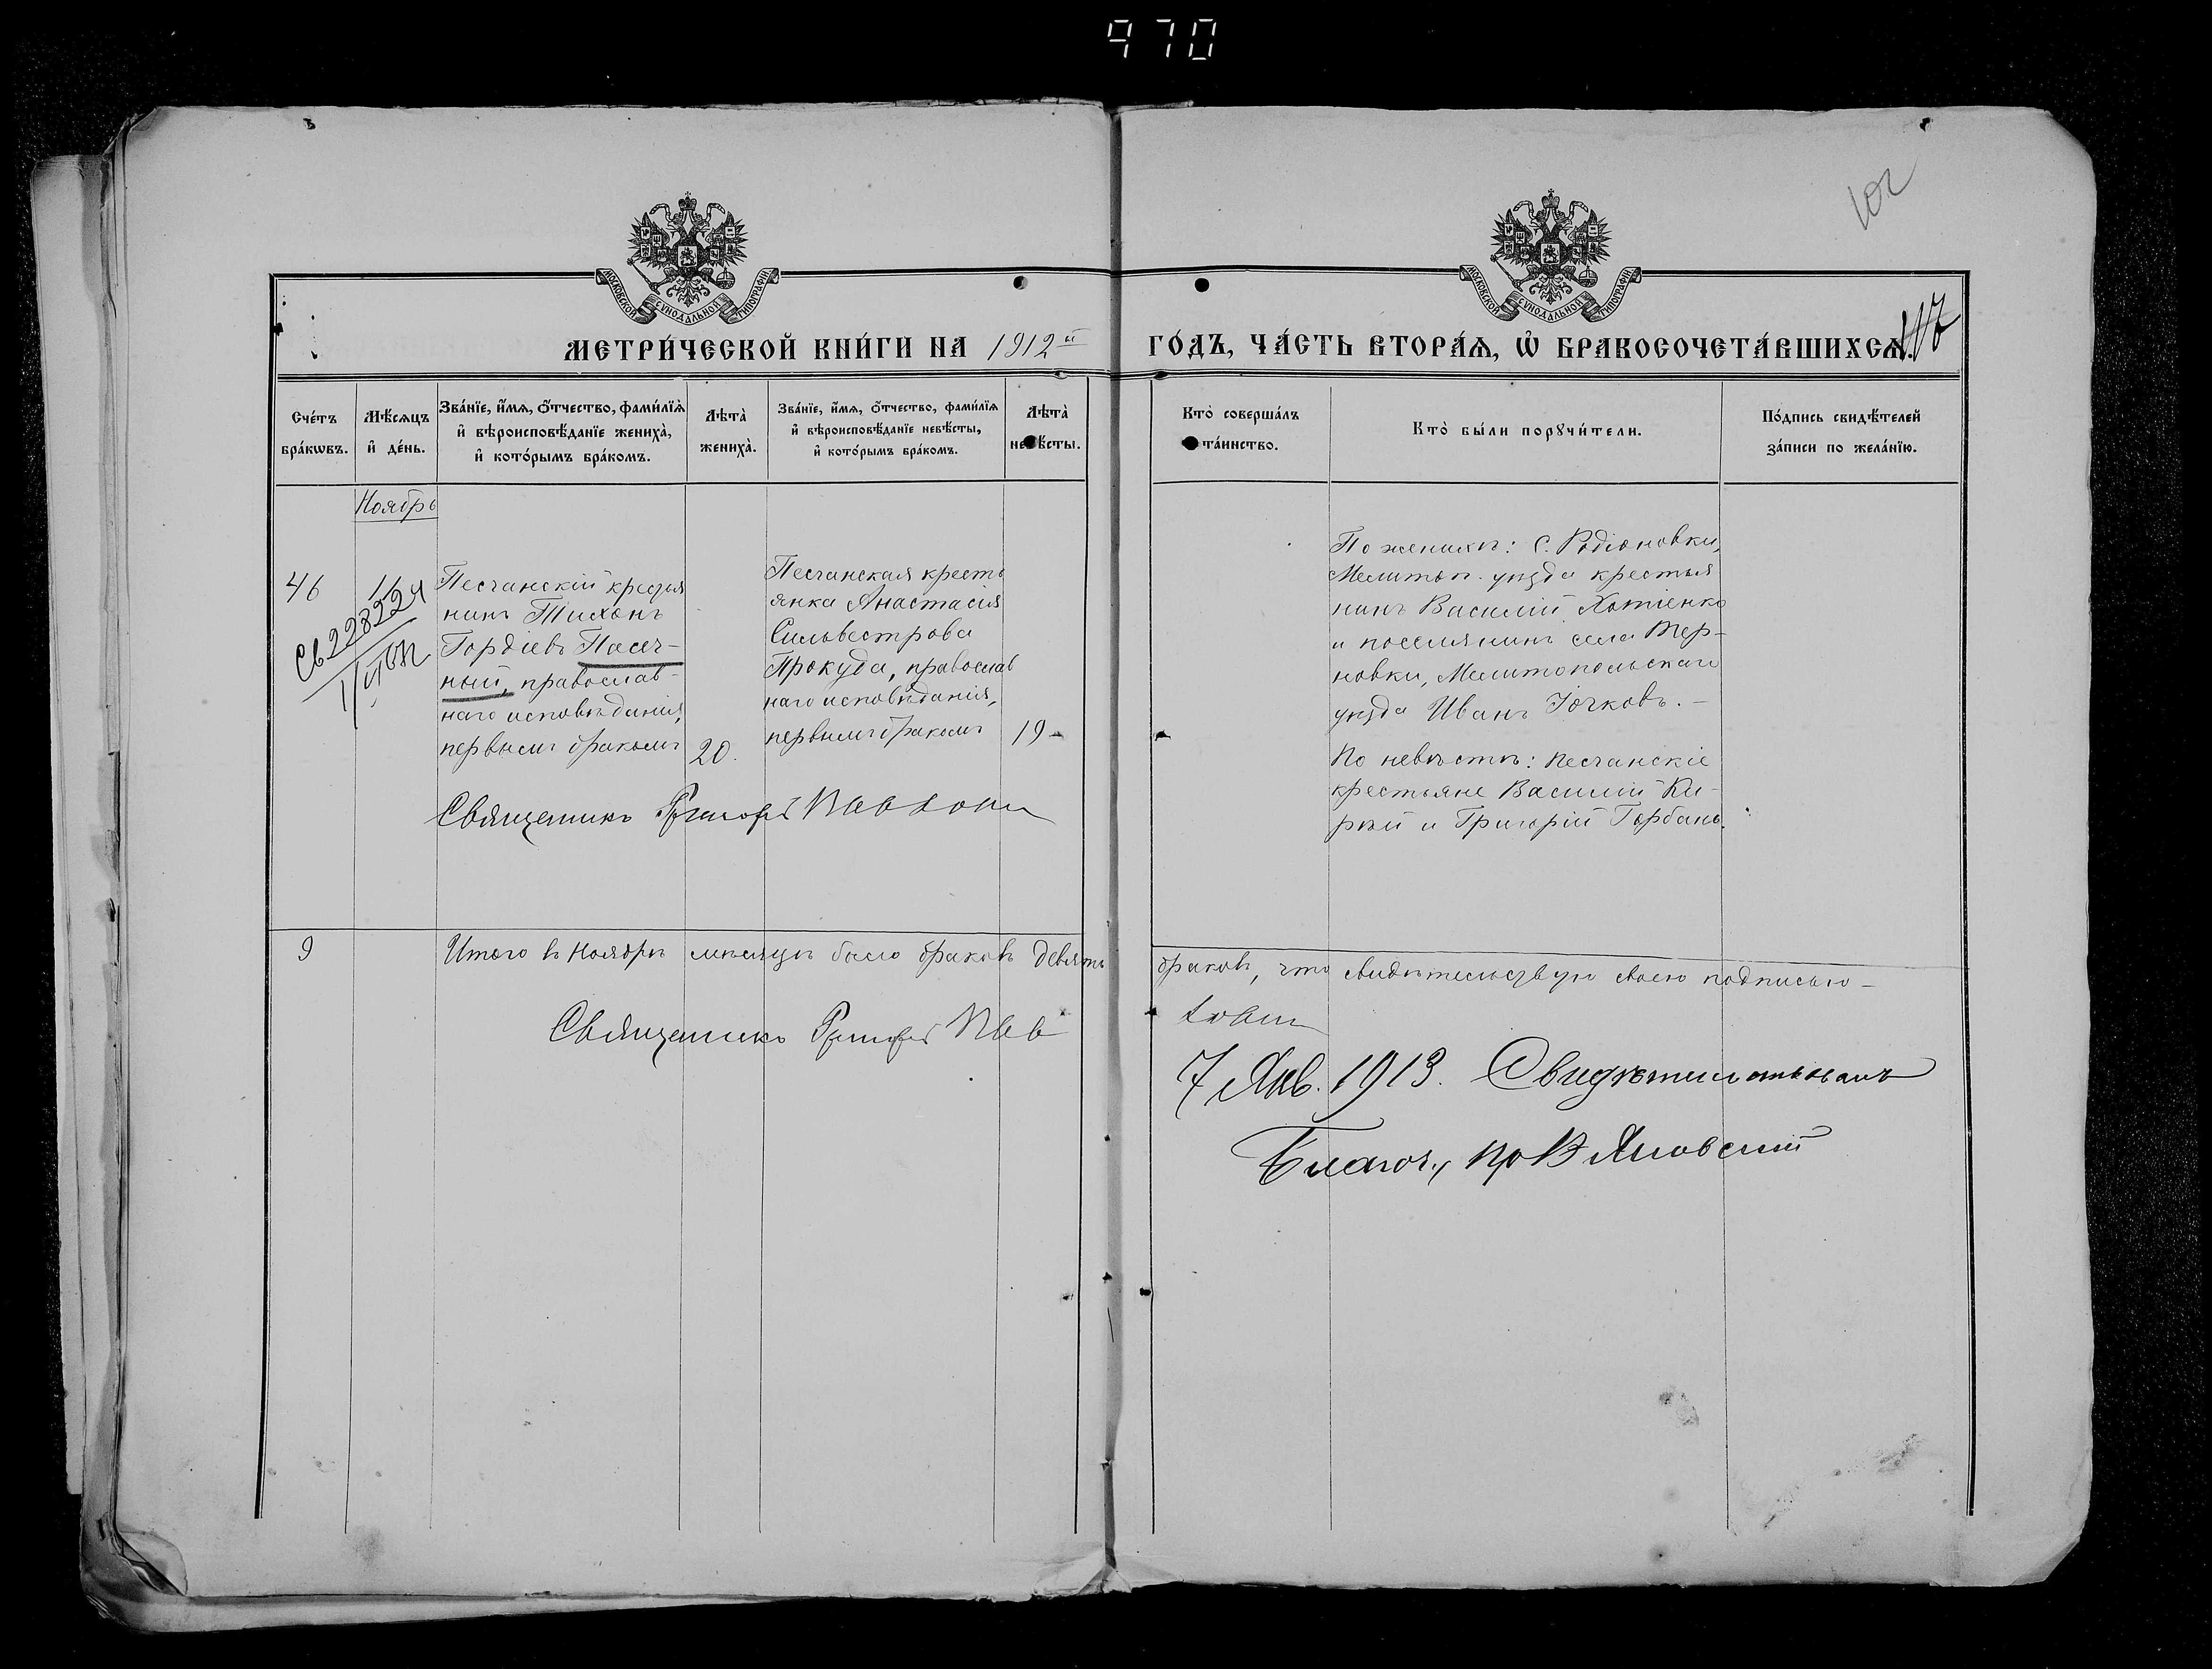 970
102
МОСКОВСКОЙ СѴНОДАЛЬНОЙ ТИПОГРАФІИ
МОСКОВСКОЙ СѴНОДАЛЬНОЙ ТИПОГРАФІИ
МЕТРИ́ЧЕСКОЙ КНИ́ГИ НА 1912й ГО́ДЪ, ЧА́СТЬ ВТОРА́Ѧ, Ѡ҆ БРАКОСОЧЕТА́ВШИХСѦ.
117
Сче́тъ
бра́кѡвъ.
Мѣ́сѧцъ
и҆ де́нь.
Зва́нїе, и҆́мѧ, ѻ҆́тчество, фами́лїѧ
и҆ вѣроисповѣ́данїе жениха̀,
и҆ кото́рымъ бра́комъ.
Лѣта̀
жениха̀.
Зва́нїе, и҆́мѧ, ѻ҆́тчество, фами́лїѧ
и҆ вѣроисповѣ́данїе невѣ́сты,
и҆ кото́рымъ бра́комъ.
Лѣта̀
невѣ́сты.
Кто̀ соверша́лъ
та́инство.
Кто̀ бы́ли порꙋчи́тели.
По́дпись свидѣ́телей
за́писи по жела́нїю.
Ноябрь
46
11
Св 228224
Песчанскій крестья
нинъ Тихонъ
Гордіевъ Пасеч-
ный, православ-
наго исповѣданія,
первымъ бракомъ
20.
Песчанская кресть
янка Анастасія
Сильвестрова
Прокуда, православ
наго исповѣданія,
первымъ бракомъ
19-
Священникъ Григорій
По женихѣ: С. Родіоновки,
Мелитоп. уѣзда крестья
нинъ Василій Хотіенко
и поселянинъ села Тер-
новки, Мелитопольскаго
уѣзда Иванъ Ючковъ. -
По невѣстѣ: песчанскіе
крестьяне Василій Ки-
рѣй и Григорій Горбань.
9
Итого въ Ноябрѣ мѣсяцѣ было браковъ девять
браковъ, что свидѣтельствую своею подписью -
Священникъ Григорій
7 Янв. 1913. Свидѣтельствовалъ
Благоч., пр В Яновский